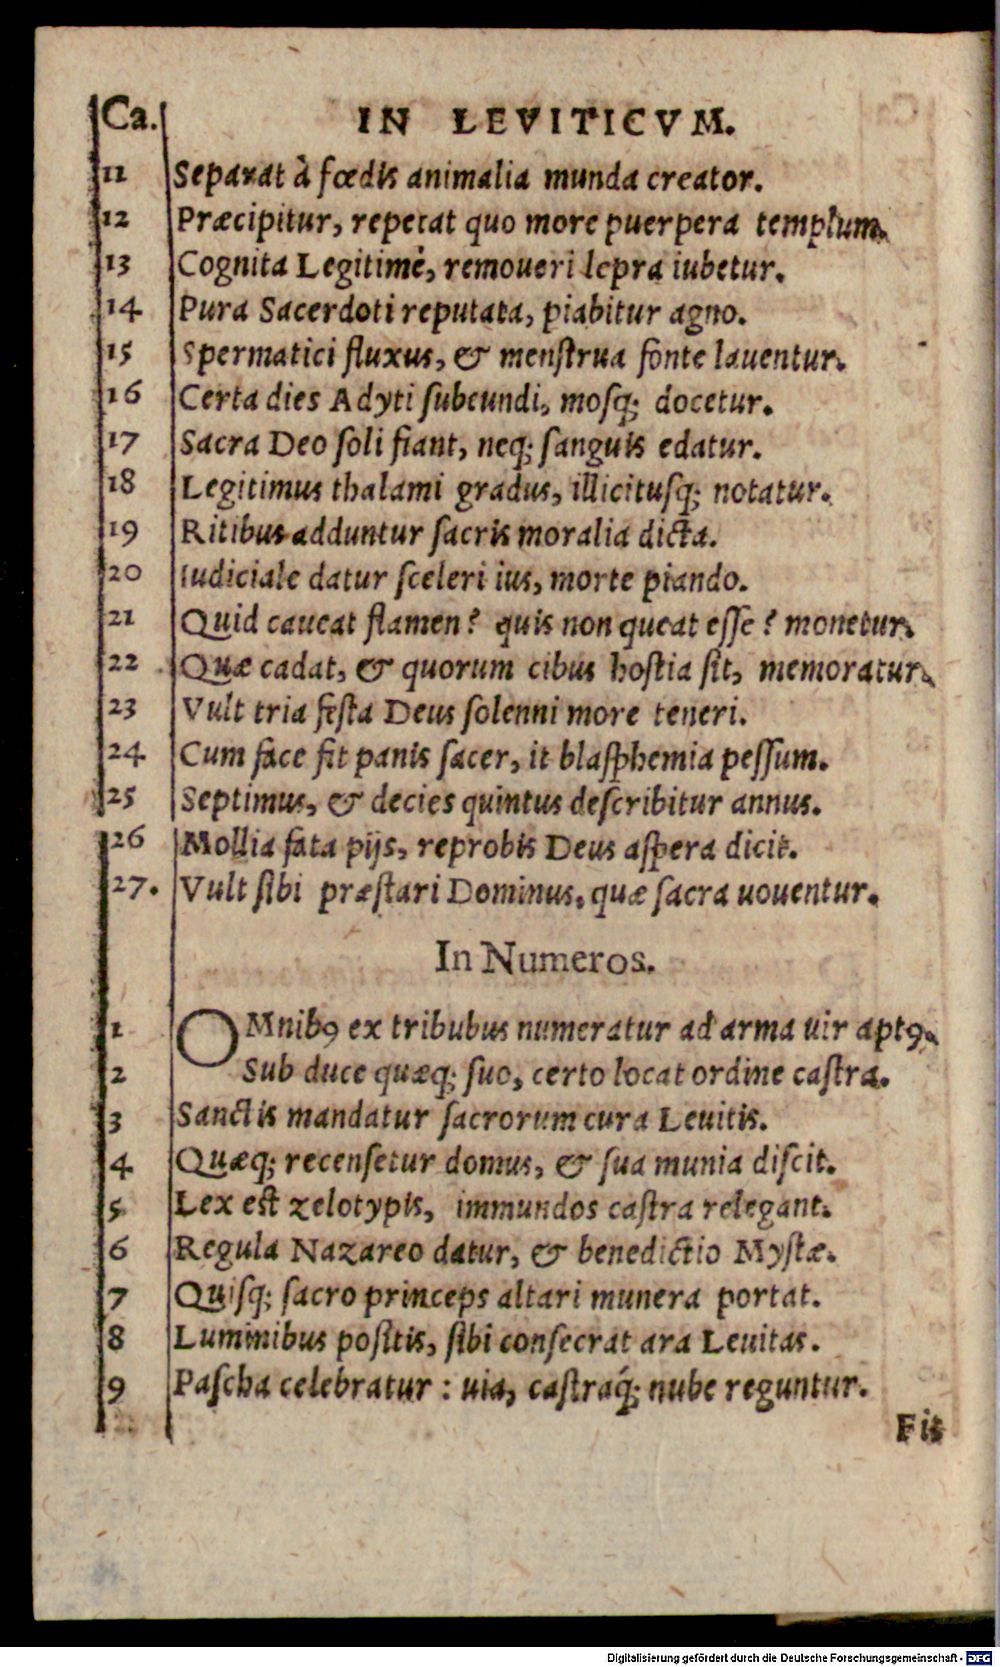 Ca. IN LEVITICVM.
11 Separat à fœdis animalia munda creator.
12 Præcipitur, repetat quo more puerpera templum.
13 Cognita Legitimè, remoueri lepra iubetur.
14 Pura Sacerdoti reputata, piabitur agno.
15 Spermatici fluxus, & menſtrua fonte lauentur.
16 Certa dies Adyti ſubeundi, moſq; docetur.
17 Sacra Deo ſoli fiant, neq; ſanguis edatur.
18 Legitimus thalami gradus, illicituſq; notatur.
19 Ritibus adduntur ſacris moralia dicta.
20 Iudiciale datur ſceleri ius, morte piando.
21 Quid caueat flamen? quis non queat eſſe? monetur.
22 Quæ cadat, & quorum cibus hoſtia ſit, memoratur.
23 Vult tria feſta Deus ſolenni more teneri.
24 Cum face fit panis ſacer, it blaſphemia peſſum.
25 Septimus, & decies quintus deſcribitur annus.
26 Mollia fata pijs, reprobis Deus aſpera dicit.
27. Vult ſibi præſtari Dominus, quæ ſacra uouentur.
In Numeros.
1 OMnibꝰ ex tribubus numeratur ad arma uir aptꝰ.
2 Sub duce quæq; ſuo, certo locat ordine caſtra.
3 Sanctis mandatur ſacrorum cura Leuitis.
4 Quæq; recenſetur domus, & ſua munia diſcit.
5 Lex eſt zelotypis, immundos caſtra relegant.
6 Regula Nazareo datur, & benedictio Myſtæ.
7 Quiſq; ſacro princeps altari munera portat.
8 Luminibus poſitis, ſibi conſecrat ara Leuitas.
9 Paſcha celebratur : uia, caſtraq́; nube reguntur.
Fit
Digitalisierung gefördert durch die Deutsche Forschungsgemeinschaft - DFG